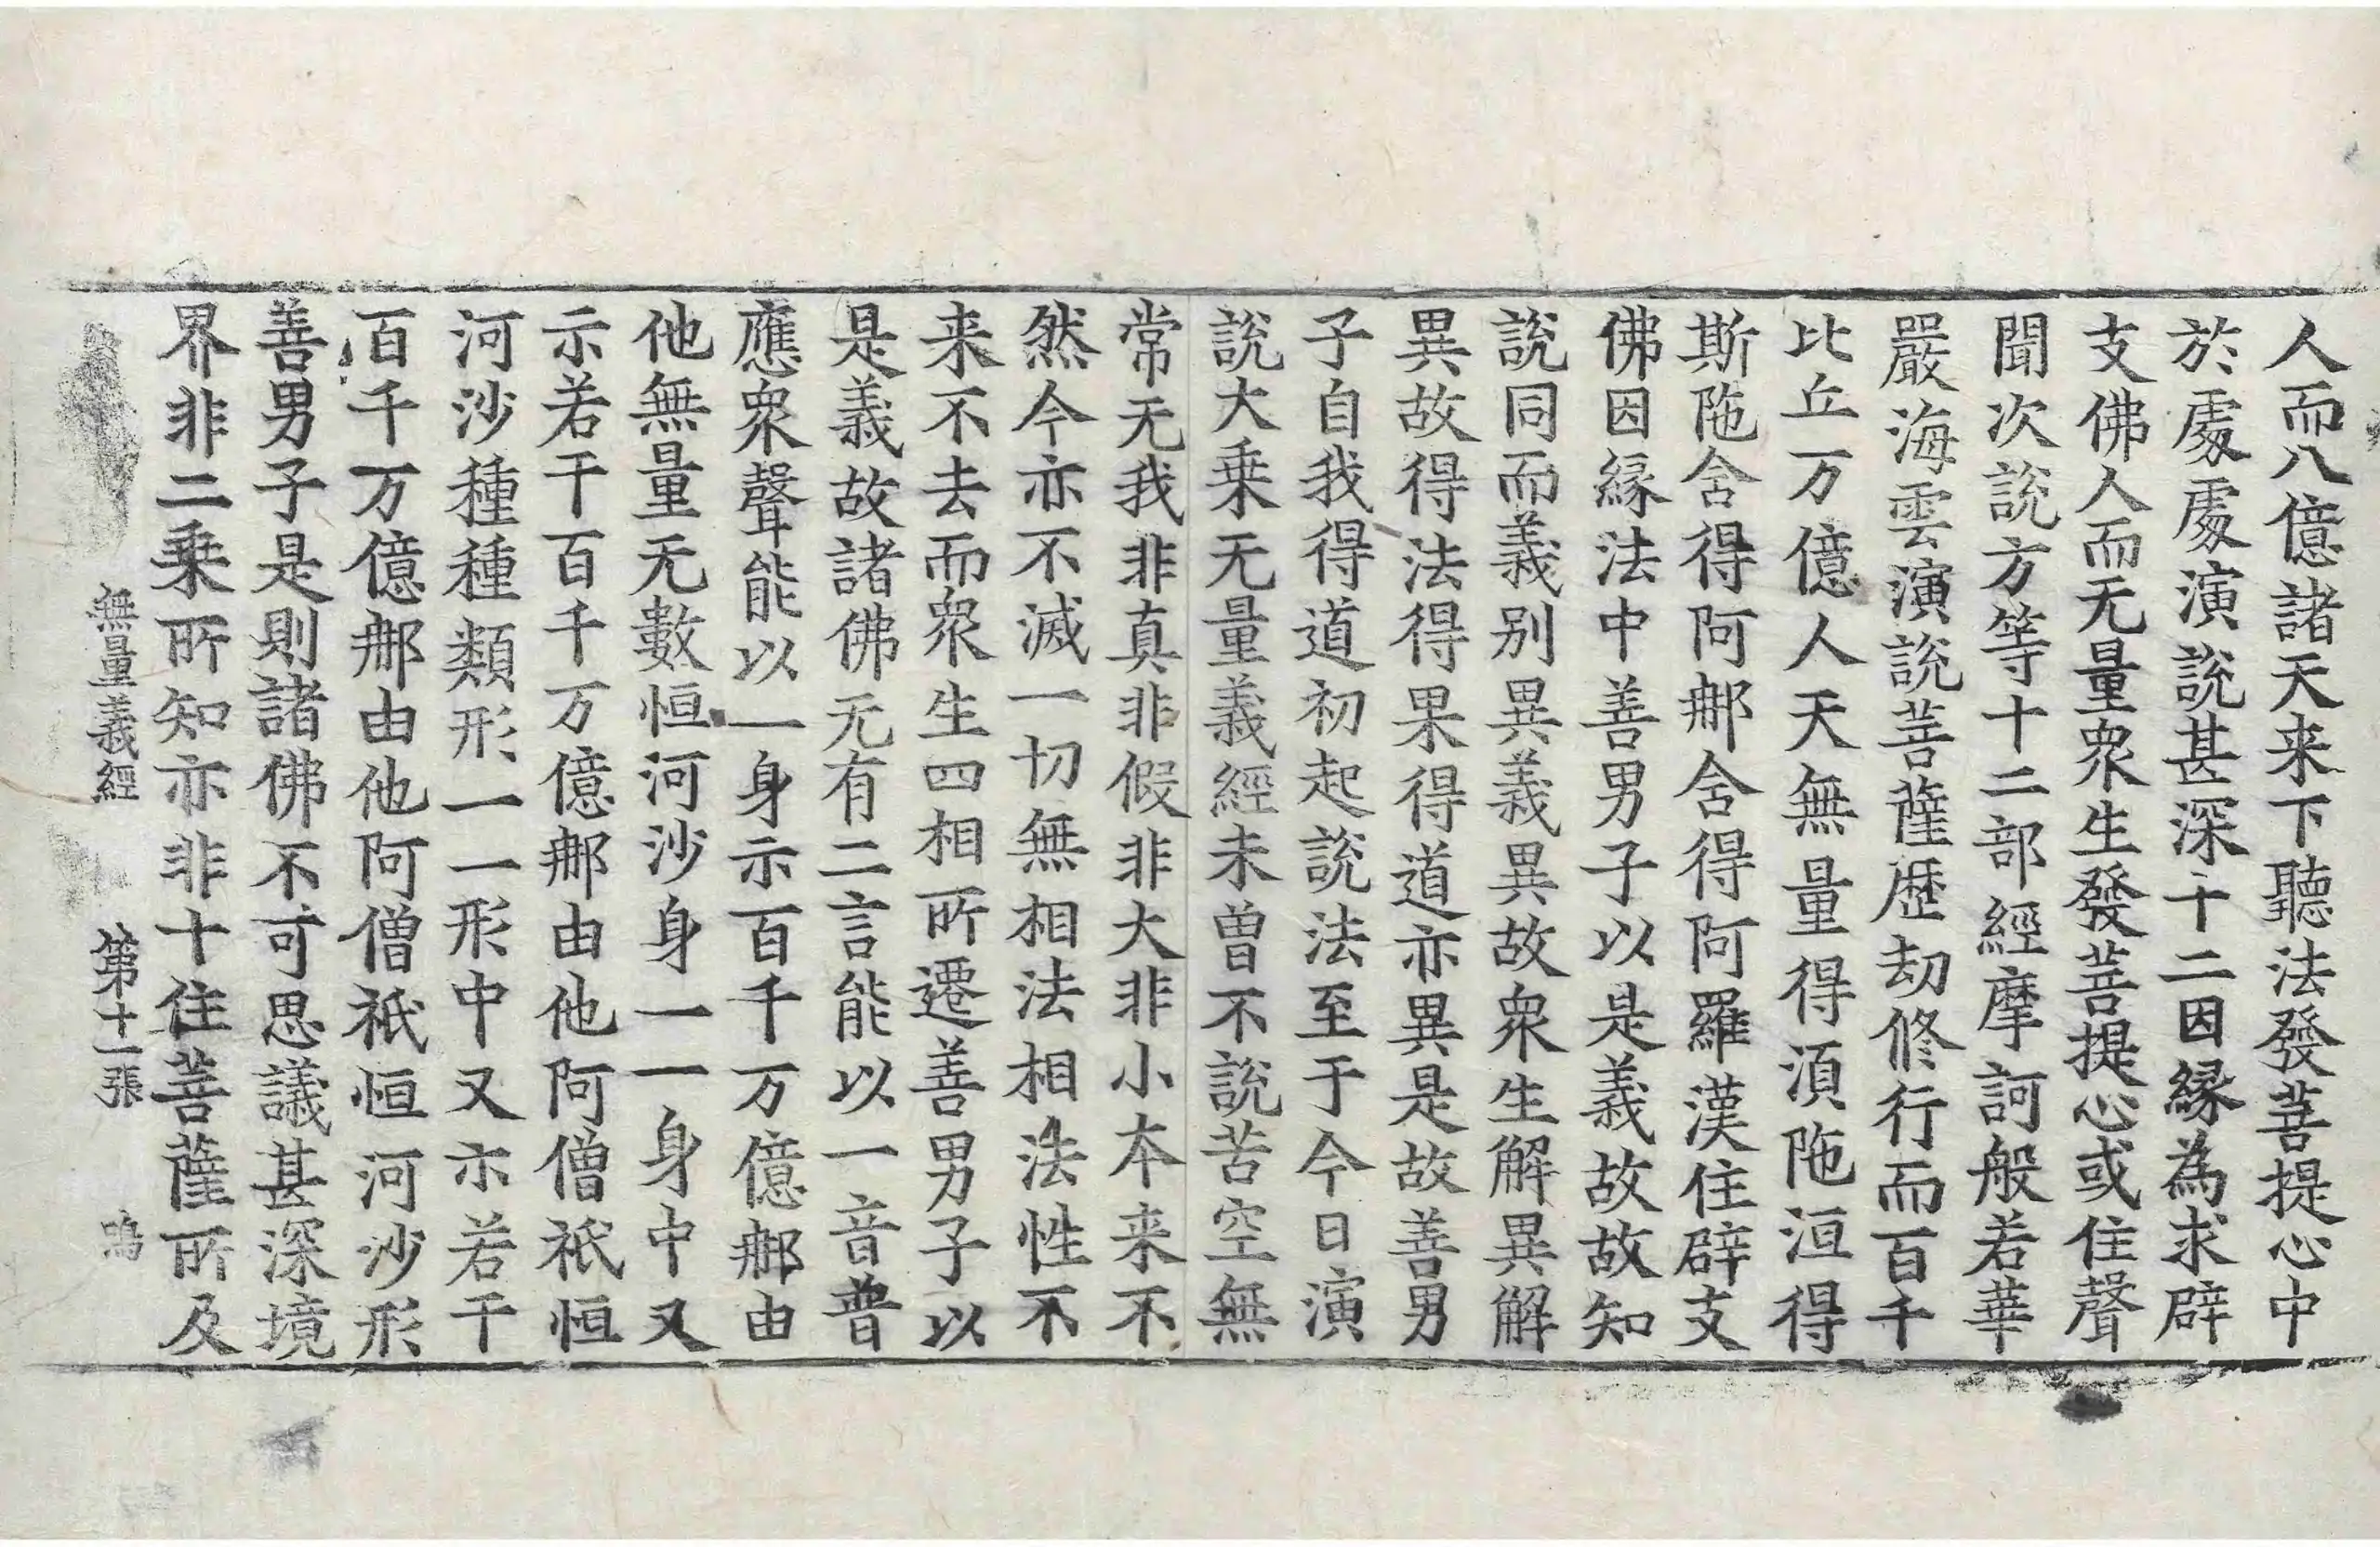 人而八億諸天来下聽法發菩提心中
於處處演說甚深十二因縁為求辟
支佛人而无量衆生發菩提心或住聲
聞次說方等十二部經摩訶般若華
嚴海雲演說菩薩歴劫修行而百千
比丘万億人天無量得湏陁洹得
斯陁含得阿那含得阿羅漢住辟支
佛因縁法中善男子以是義故故知
說同而義别異義異故衆生解異解
異故得法得果得道亦異是故善男
子自我得道初起說法至于今日演
說大乗无量義經未曾不說苦空無
常无我非真非假非大非小本来不
然今亦不滅一切無相法相法性不
来不去而衆生四相所遷善男子以
是義故諸佛无有二言能以一音普
應衆聲能以一身示百千万億那由
他無量无數恒河沙身一一身中又
示若干百千万億那由他阿僧祇恒
河沙種種類形一一形中又示若干
百千万億那由他阿僧祇恒河沙形
善男子是則諸佛不可思議甚深境
界非二乗所知亦非十住菩薩所及
無量義經 第十一張 鳴